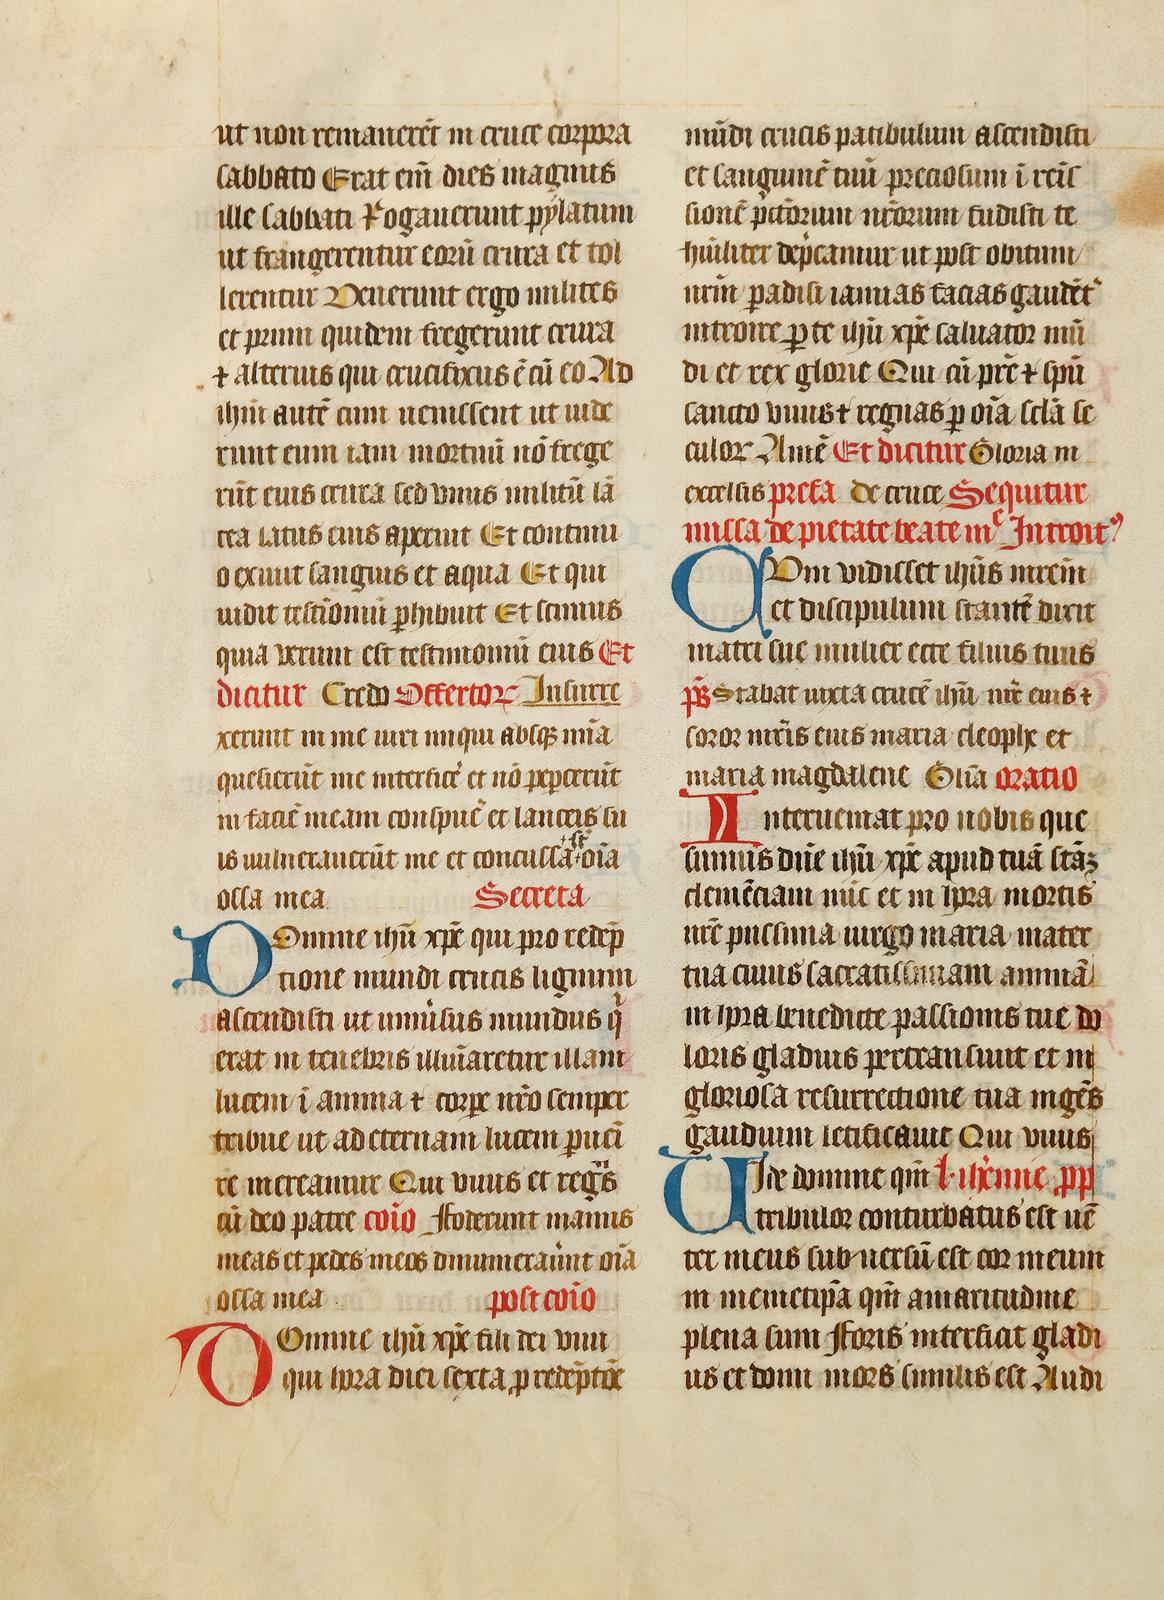 ut non remanerēt in cruce corpora
sabbato Erat em̄ dies magnus
ille sabbati Rogauerunt pylatum
ut frangerentur eorū crura et tol
lerentur Venerunt ergo milites
et primi quidem fregerunt crura
⁊ alterius qui crucifixus ē cū eo Ad
ihm̄ autē cum uenissent ut uide
runt eum iam mortuū nō frege
rūt eius crura sed vnus militū lā
cea latus eius aperuit Et continu
o exiuit sanguis et aqua Et qui
uidit testīoniū ꝑhibuit Et scimus
quia verum est testimoniū eius Et
dicitur Credo Offertor̄ Insurre
xerunt in me uiri iniqui absqꝫ mīa
quesierūt me interficē et nō peꝑcerūt
in faciē meam conspuē et lanceis su
is vulnerauerūt me et concussa sūt oīa
ossa mea Secreta
Domine ihū xp̄e qui pro redēp
tione mundi crucis lignum
ascendisti ut uniūsus mundus q̄
erat in tenebris illuīaretur illam
lucem ī anima ⁊ corpe nr̄o semper
tribue ut ad eternam lucem ꝑueī
re mereamur Qui viuus et regn̄s
cū deo patre cōio Foderunt manus
meas et pedes meos dinumerauīnt oīa
ossa mea post cōio
Domine ihū xp̄e fili dei viui
qui hora diei sexta ꝓ redēptōe
mūdi crucis patibulum ascendisti
et sanguinē tuū preciosum ī reīs
sionē pctōrum nr̄orum fudisti te
hūiliter dep̄camur ut post obitum
nrm̄ ꝑadisi ianuas facias gaudēt
introire ꝑ te ihū xp̄e saluator mū
di et rex glorie Qui cū prē ⁊ spū
sancto viuus ⁊ regnas ꝑ oīa sclā se
culoꝝ Amē Et dicitur Gloria in
excelsis prefa de cruce Sequitur
missa de pietate beate m̄e Introit9
CVm vidisset ihūs mrēm
et discipulum stantē dixit
matri sue mulier ecce filius tuus
p̄s Stabat iuxta crucē ihū mr̄ eius ⁊
soror mr̄is eius maria cleophe et
maria magdalene Glīa oratio
Interueniat pro nobis que
sumus dn̄e ihū xp̄e apud tuā stāꝫ
clemēciam nūc et in hora mortis
nr̄e piissima uirgo maria mater
tua cuius sacratissimam animā
in hora benedicte passionis tue do
loris gladius pertransiuit et in
gloriosa resurrectione tua ingēs
gaudium letificauit Qui viuus
Vide domine qm̄ l. iherēmie pp̄
tribulor conturbatus est uē
ter meus subuersū est cor meum
in memetip̄a qm̄ amaritudine
plena sum Foris interficit gladi
us et domi mors similis est Audi